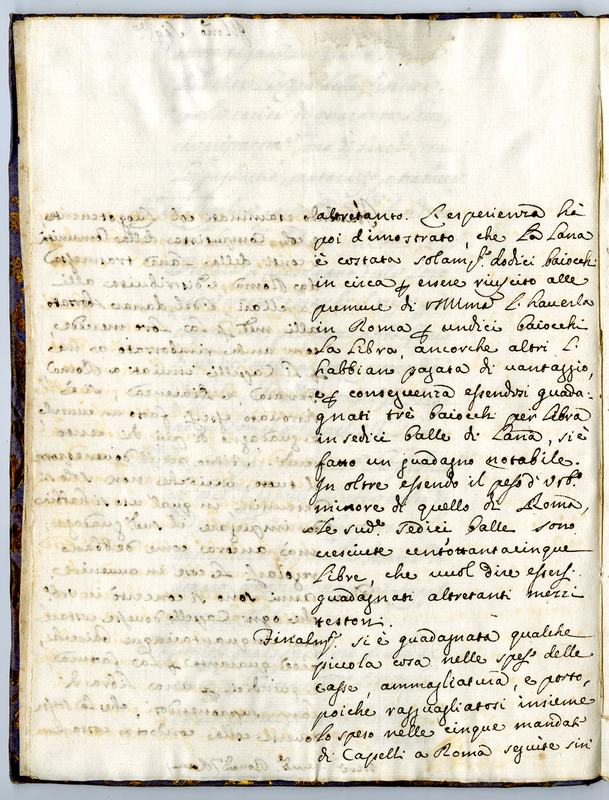 altretanto. L'esperienza hà
poi dimostrato, che La Lana
è costata solam.te dodici baiocchi
in circa per essere riuscito alle
premure di VSIllma L'hauerla
in Roma per undici baiocchi
La Libra, ancorche altri L'
habbiano pagata di uantaggio,
e per conseguenza essendosi guada-
gnati trè baiocchi per Libra
in sedici balle di Lana, si è
fatto un guadagno notabile.
In oltre essendo il peso d'Urb.o
minore di quello di Roma,
Le sud.e sedici balle sono
cresciute cent'ottantacinque
Libre, che uuol dire essersi
guadagnati altretanti mezzi
testoni.
Finalm.te si è guadagnata qualche
piccola cosa nelle spese delle
casse, ammagliatura, e porto,
poiche ragguagliatosi insieme
lo speso nelle cinque mandate
di Capelli a Roma seguite sin